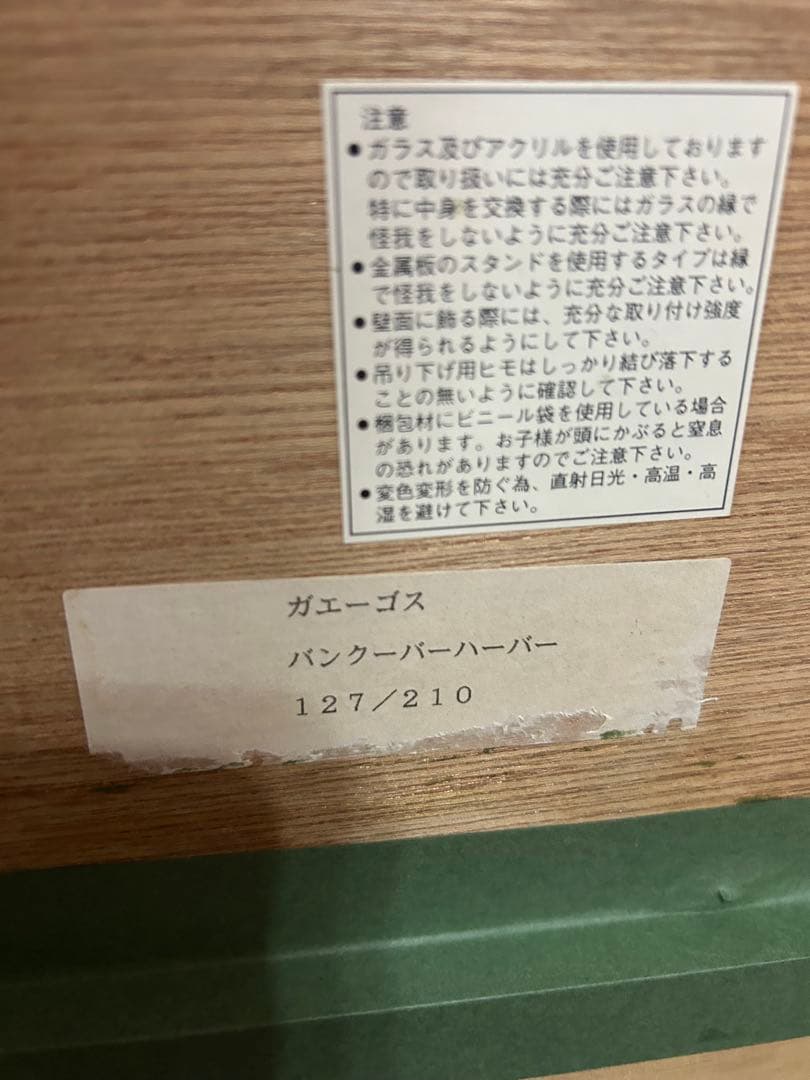 注意
●ガラス及びアクリルを使用しております
ので取り扱いには充分ご注意下さい。
特に中身を交換する際にはガラスの縁で
怪我をしないように充分ご注意下さい。
●金属板のスタンドを使用するタイプは縁
で怪我をしないように充分ご注意下さい。
●壁面に飾る際には、充分な取り付け強度
が得られるようにして下さい。
●吊り下げ用ヒモはしっかり結び落下する
ことの無いように確認して下さい。
●梱包材にビニール袋を使用している場合
があります。お子様が頭にかぶると窒息
の恐れがありますのでご注意下さい。
●変色変形を防ぐ為、直射日光・高温・高
湿を避けて下さい。
ガエーゴス
バンクーバーハーバー
127/210